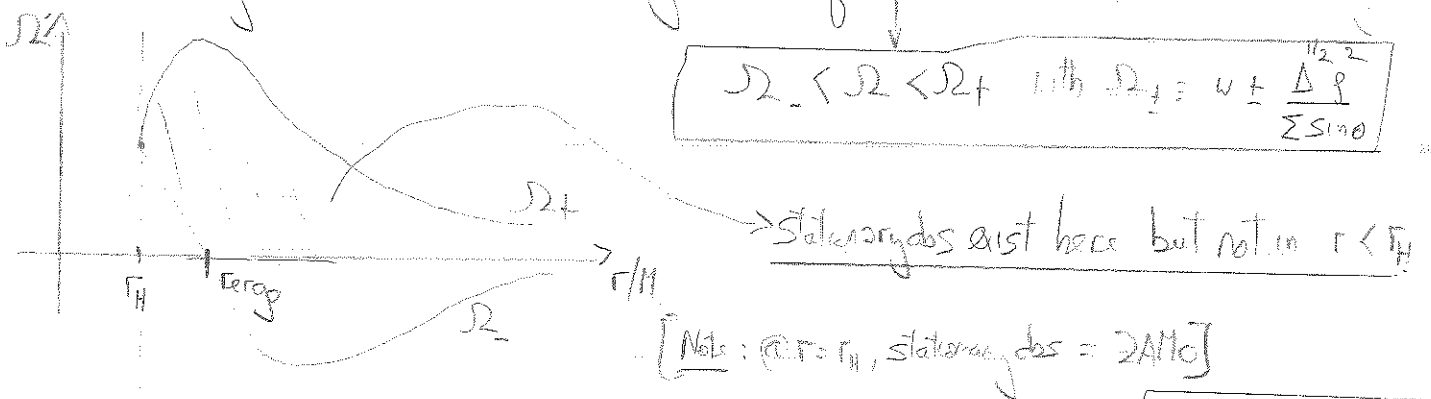 Ω
Ω₋ < Ω < Ω₊ with Ω± = ω ± Δ^{1/2} ρ² / Σ sinθ
Ω₊
→ Stationary obs exist here but not in r < r_H
r_H
r_ergo
r/M
Ω₋
[Note: @ r = r_H, stationary obs = ZAMO]